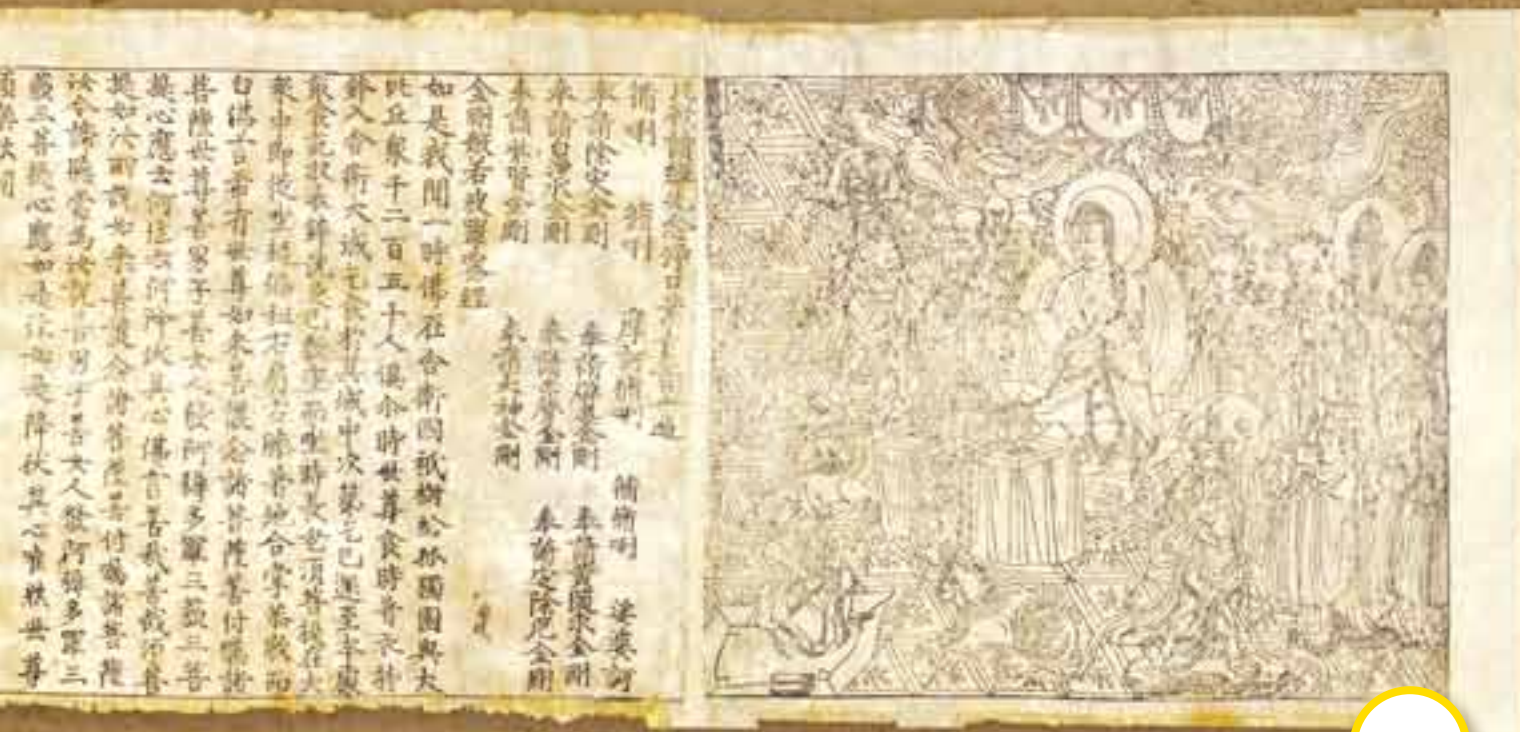 脩唎 脩唎 摩訶脩唎 脩脩唎 娑婆訶
奉請除灾金剛 奉請辟毒金剛 奉請黃隨求金剛
奉請白淨水金剛 奉請赤聲金剛 奉請定除厄金剛
奉請紫賢金剛 奉請大神金剛
金剛般若波羅蜜經
如是我聞一時佛在舍衛國祇樹給孤獨園與大
比丘衆千二百五十人俱尒時世尊食時著衣持
鉢入舍衛大城乞食於其城中次第乞已還至本處
飯食訖收衣鉢洗足已敷座而坐時長老須菩提在大
衆中即從座起偏袒右肩右膝著地合掌恭敬而
白佛言希有世尊如來善護念諸菩薩善付囑諸
菩薩世尊善男子善女人發阿耨多羅三藐三菩
提心應云何住云何降伏其心佛言善哉善哉須菩
提如汝所說如來善護念諸菩薩善付囑諸菩薩
汝今諦聽當為汝說善男子善女人發阿耨多羅三
藐三菩提心應如是住如是降伏其心唯然世尊
願樂欲聞